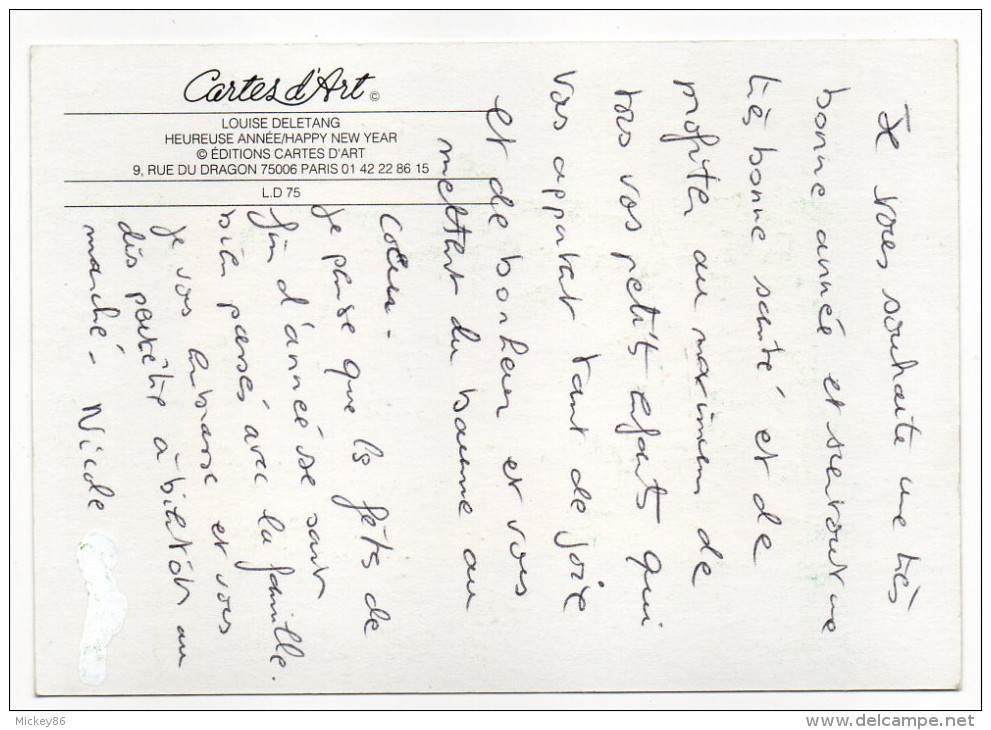 Cartes d'Art ©
LOUISE DELETANG
HEUREUSE ANNÉE/HAPPY NEW YEAR
© ÉDITIONS CARTES D'ART
9, RUE DU DRAGON 75006 PARIS 01 42 22 86 15
L.D 75
Je vous souhaite une très
bonne année et surtout une
très bonne santé et de
profiter au maximum de
tous vos petits enfants qui
vous apportent tant de joie
et de bonheur et vous
mettent du baume au
coeur -
Je pense que les fêtes de
fin d'année se sont
bien passés avec la famille.
Je vous embrasse et vous
dis peutêtre à bientôt au
marché - Nicole
Mickey86
http://www.delcampe.net